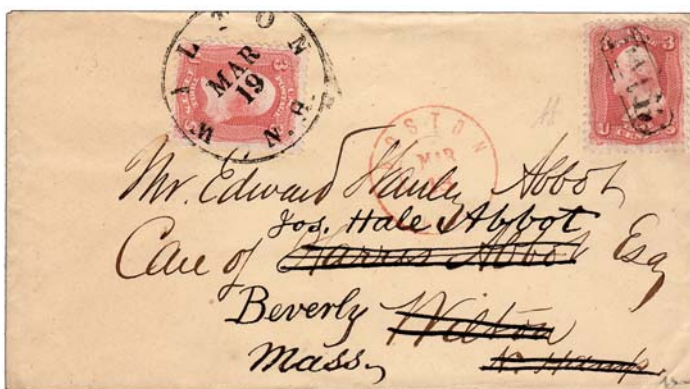 WILTON N.H.
MAR
19
3
3
PAID
BOSTON
MAR
Mr. Edward Stanley Abbot
Jos. Hale Abbot
Care of Harris Abbot Esq
Beverly Wilton
Mass, N. Hamp.